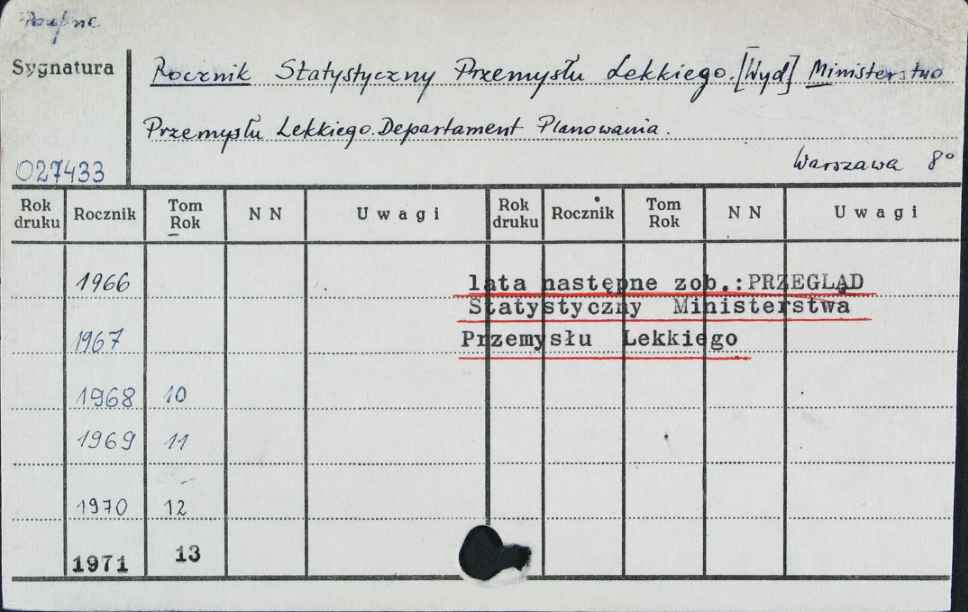 Poufne
Sygnatura
Rocznik Statystyczny Przemysłu Lekkiego. [Wyd] Ministerstwo
Przemysłu Lekkiego. Departament Planowania.
027433
Warszawa 8°
Rok druku Rocznik Tom Rok N N Uwagi Rok druku Rocznik Tom Rok N N Uwagi
1966
lata następne zob.: PRZEGLĄD
Statystyczny Ministerstwa
1967
Przemysłu Lekkiego
1968 10
1969 11
1970 12
1971 13